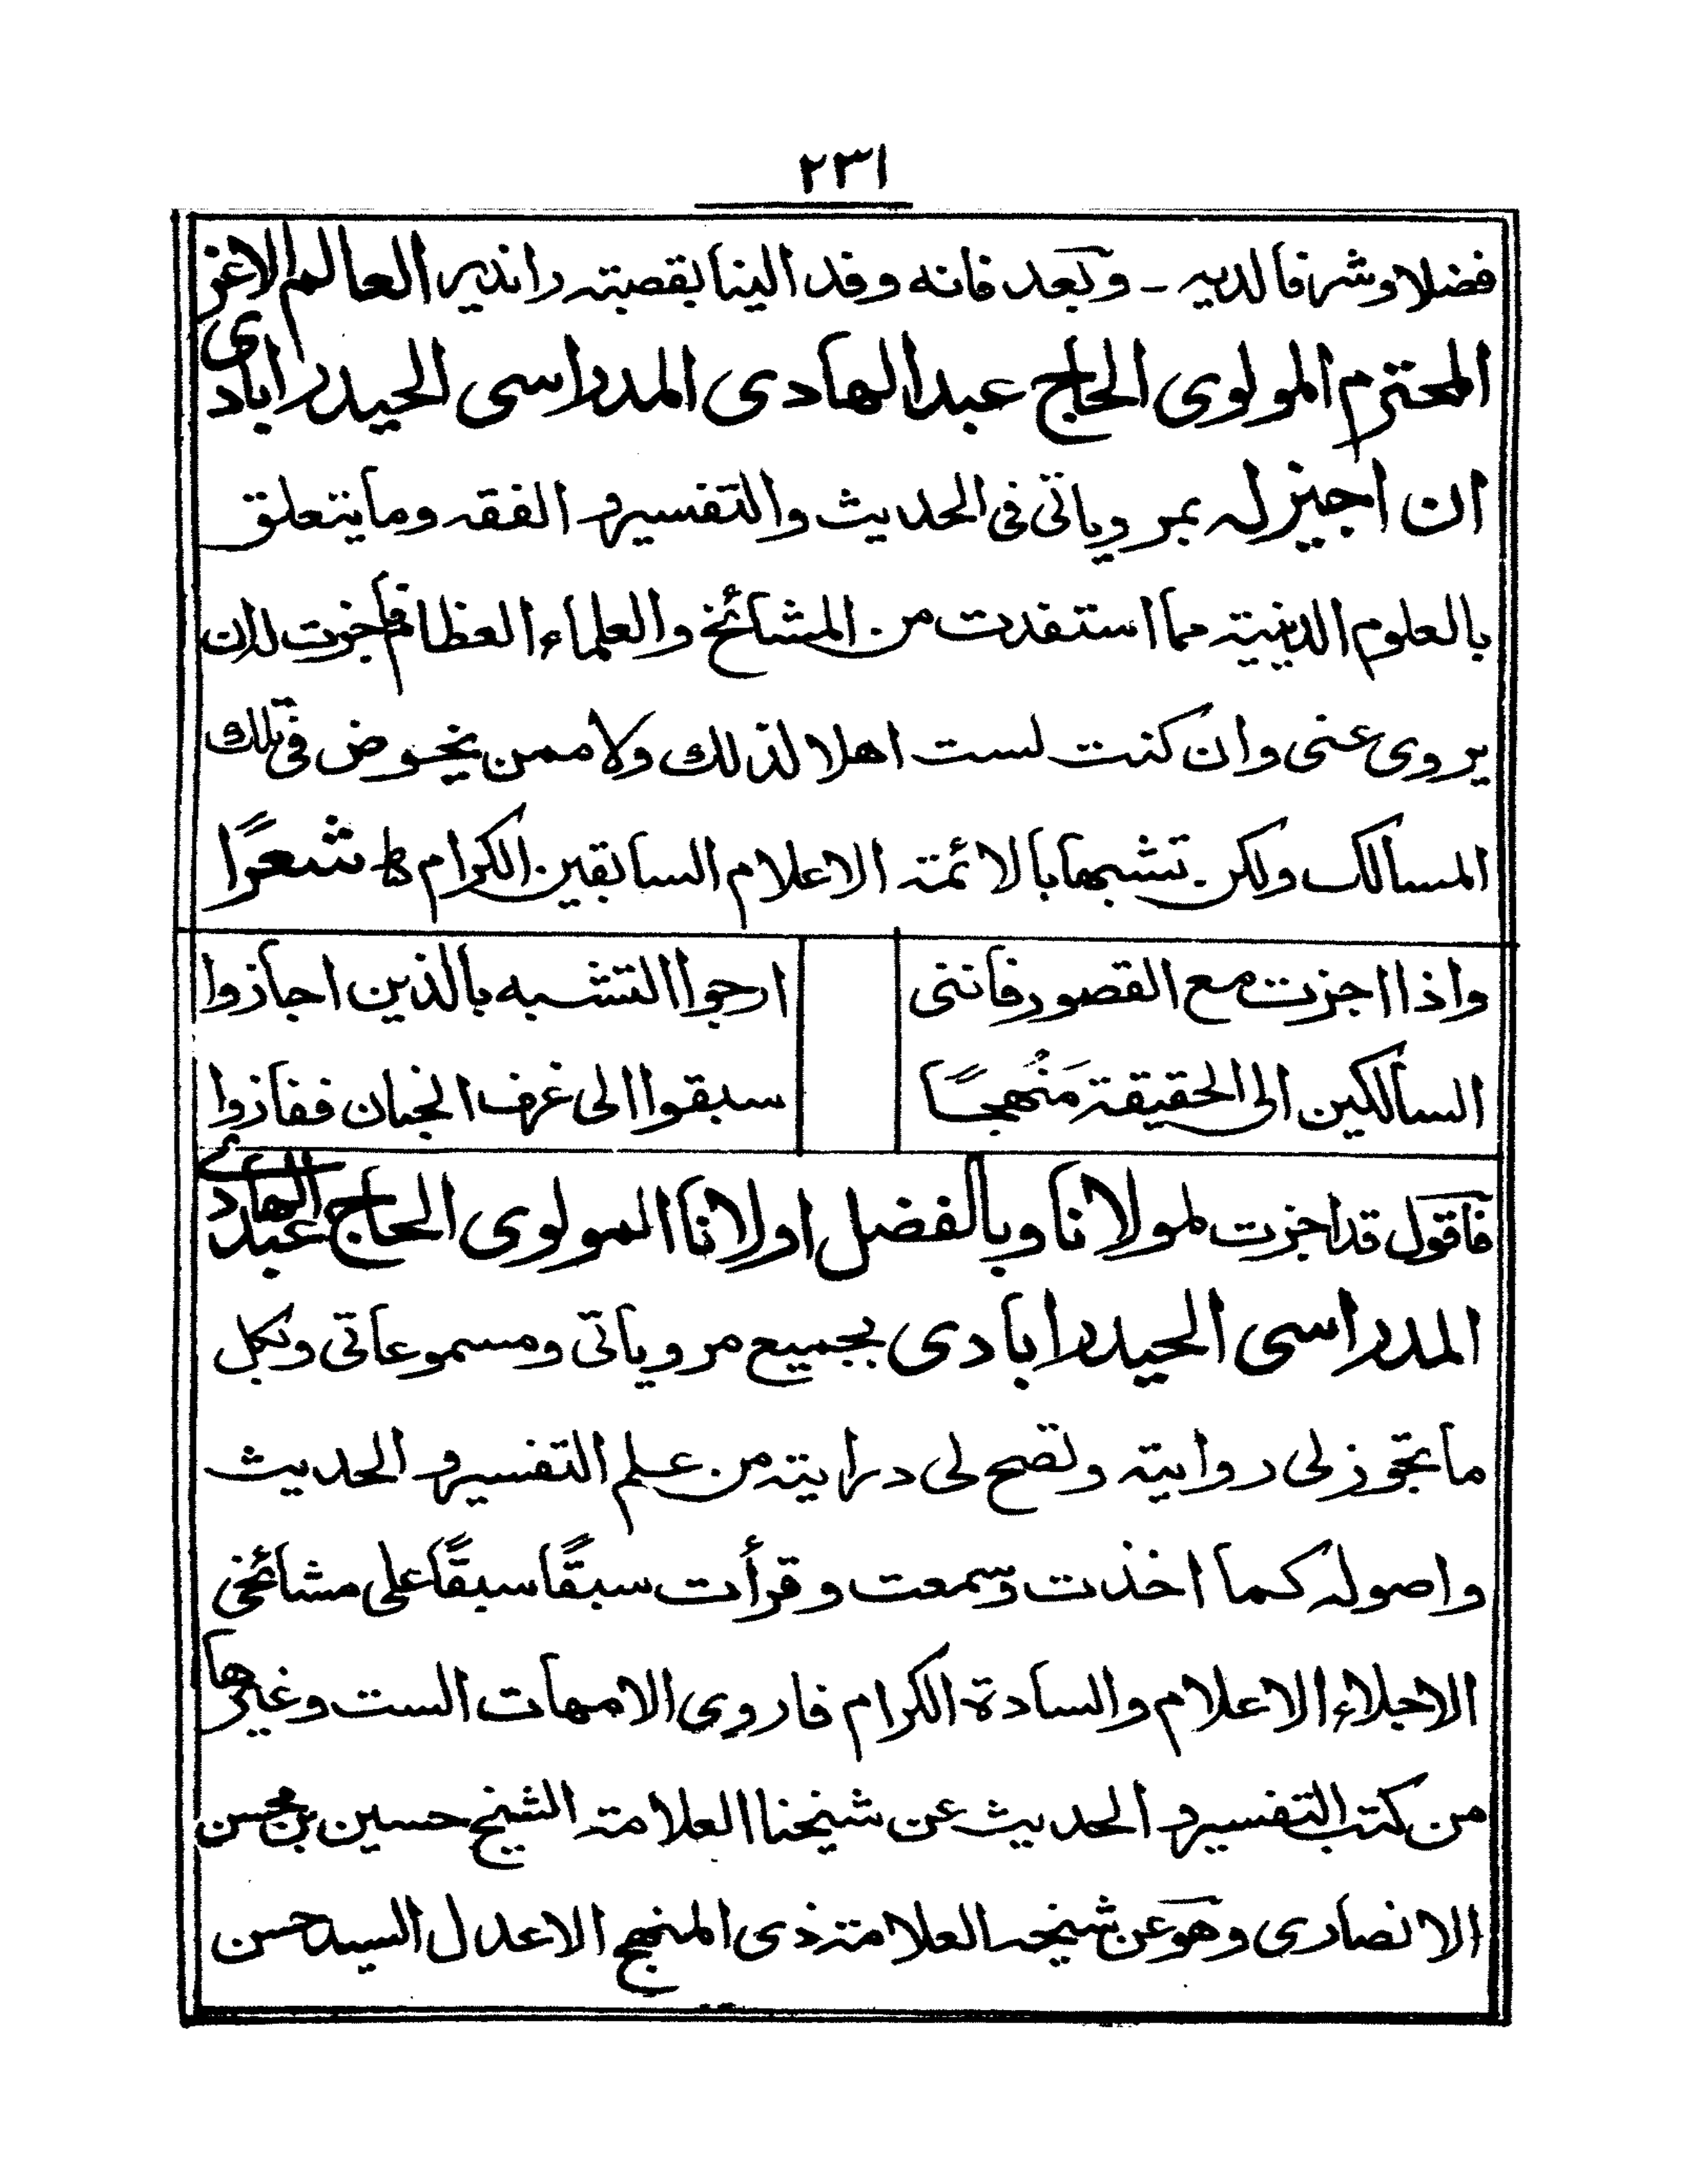 ٢٣١
فضلا وشرفا لديه - وبعد فانه وفد الينا بقصبته راندير العالم الاغر
المحترم المولوى الحاج عبد الهادى المدراسى الحيدرابادى
ان اجيز له بمروياتى فى الحديث والتفسير و الفقه وما يتعلق
بالعلوم الدينية مما استفدت من المشائخ والعلماء العظام فاجزت له ان
يروى عنى وان كنت لست اهلا لذلك ولا ممن يخوض فى تلك
المسالك ولكن تشبها بالائمة الاعلام السابقين الكرام ط شعرًا
واذا اجزت مع القصور فاننى ارجوا التشبه بالذين اجازوا
السالكين الى الحقيقة مَنْهجًا سبقوا الى غرف الجنان ففازوا
فاقول قد اجزت لمولانا وبالفضل اولانا المولوى الحاج عبد الهادى
المدراسى الحيدرابادى بجميع مروياتى ومسموعاتى وبكل
ما تجوز لى روايته وتصح لى درايته من علم التفسير و الحديث
واصوله كما اخذت وسمعت وقرأت سبقًا سبقًا على مشائخى
الاجلاء الاعلام والسادة الكرام فاروى الامهات الست وغيرها
من كتب التفسير و الحديث عن شيخنا العلامة الشيخ حسين بن محسن
الانصارى وهو عن شيخه العلامة ذى المنهج الاعدل السيد حسن